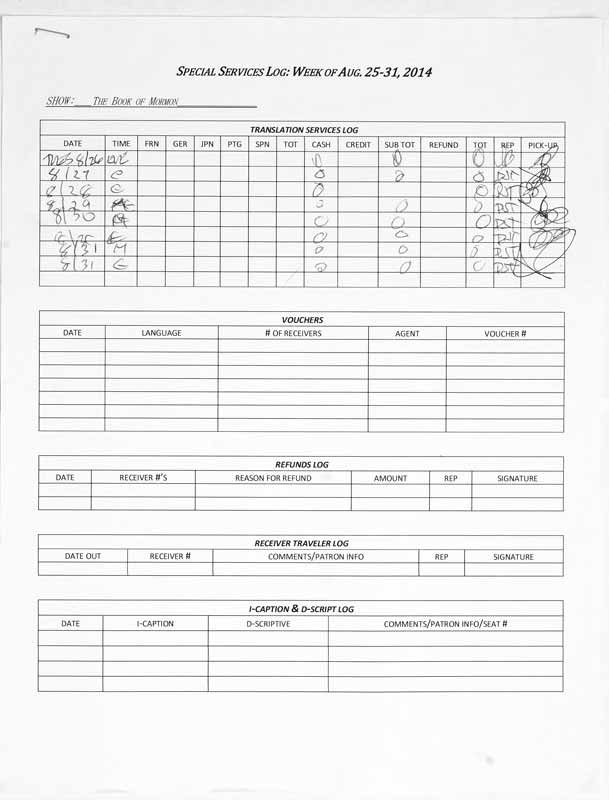 SPECIAL SERVICES LOG: WEEK OF AUG. 25-31, 2014
SHOW: THE BOOK OF MORMON
TRANSLATION SERVICES LOG
DATE TIME FRN GER JPN PTG SPN TOT CASH CREDIT SUB TOT REFUND TOT REP PICK-UP
TUES 8/26 0 0 0
8/27 E 0 0 0 DST
8/28 E 0 0 DST
8/29 0 0 0 DST
8/30 0 0 0 DST
E 0 0 0 DST
8/31 M 0 0 0 DST
8/31 E 0 0 0 DST
VOUCHERS
DATE LANGUAGE # OF RECEIVERS AGENT VOUCHER #
REFUNDS LOG
DATE RECEIVER #'S REASON FOR REFUND AMOUNT REP SIGNATURE
RECEIVER TRAVELER LOG
DATE OUT RECEIVER # COMMENTS/PATRON INFO REP SIGNATURE
I-CAPTION & D-SCRIPT LOG
DATE I-CAPTION D-SCRIPTIVE COMMENTS/PATRON INFO/SEAT #